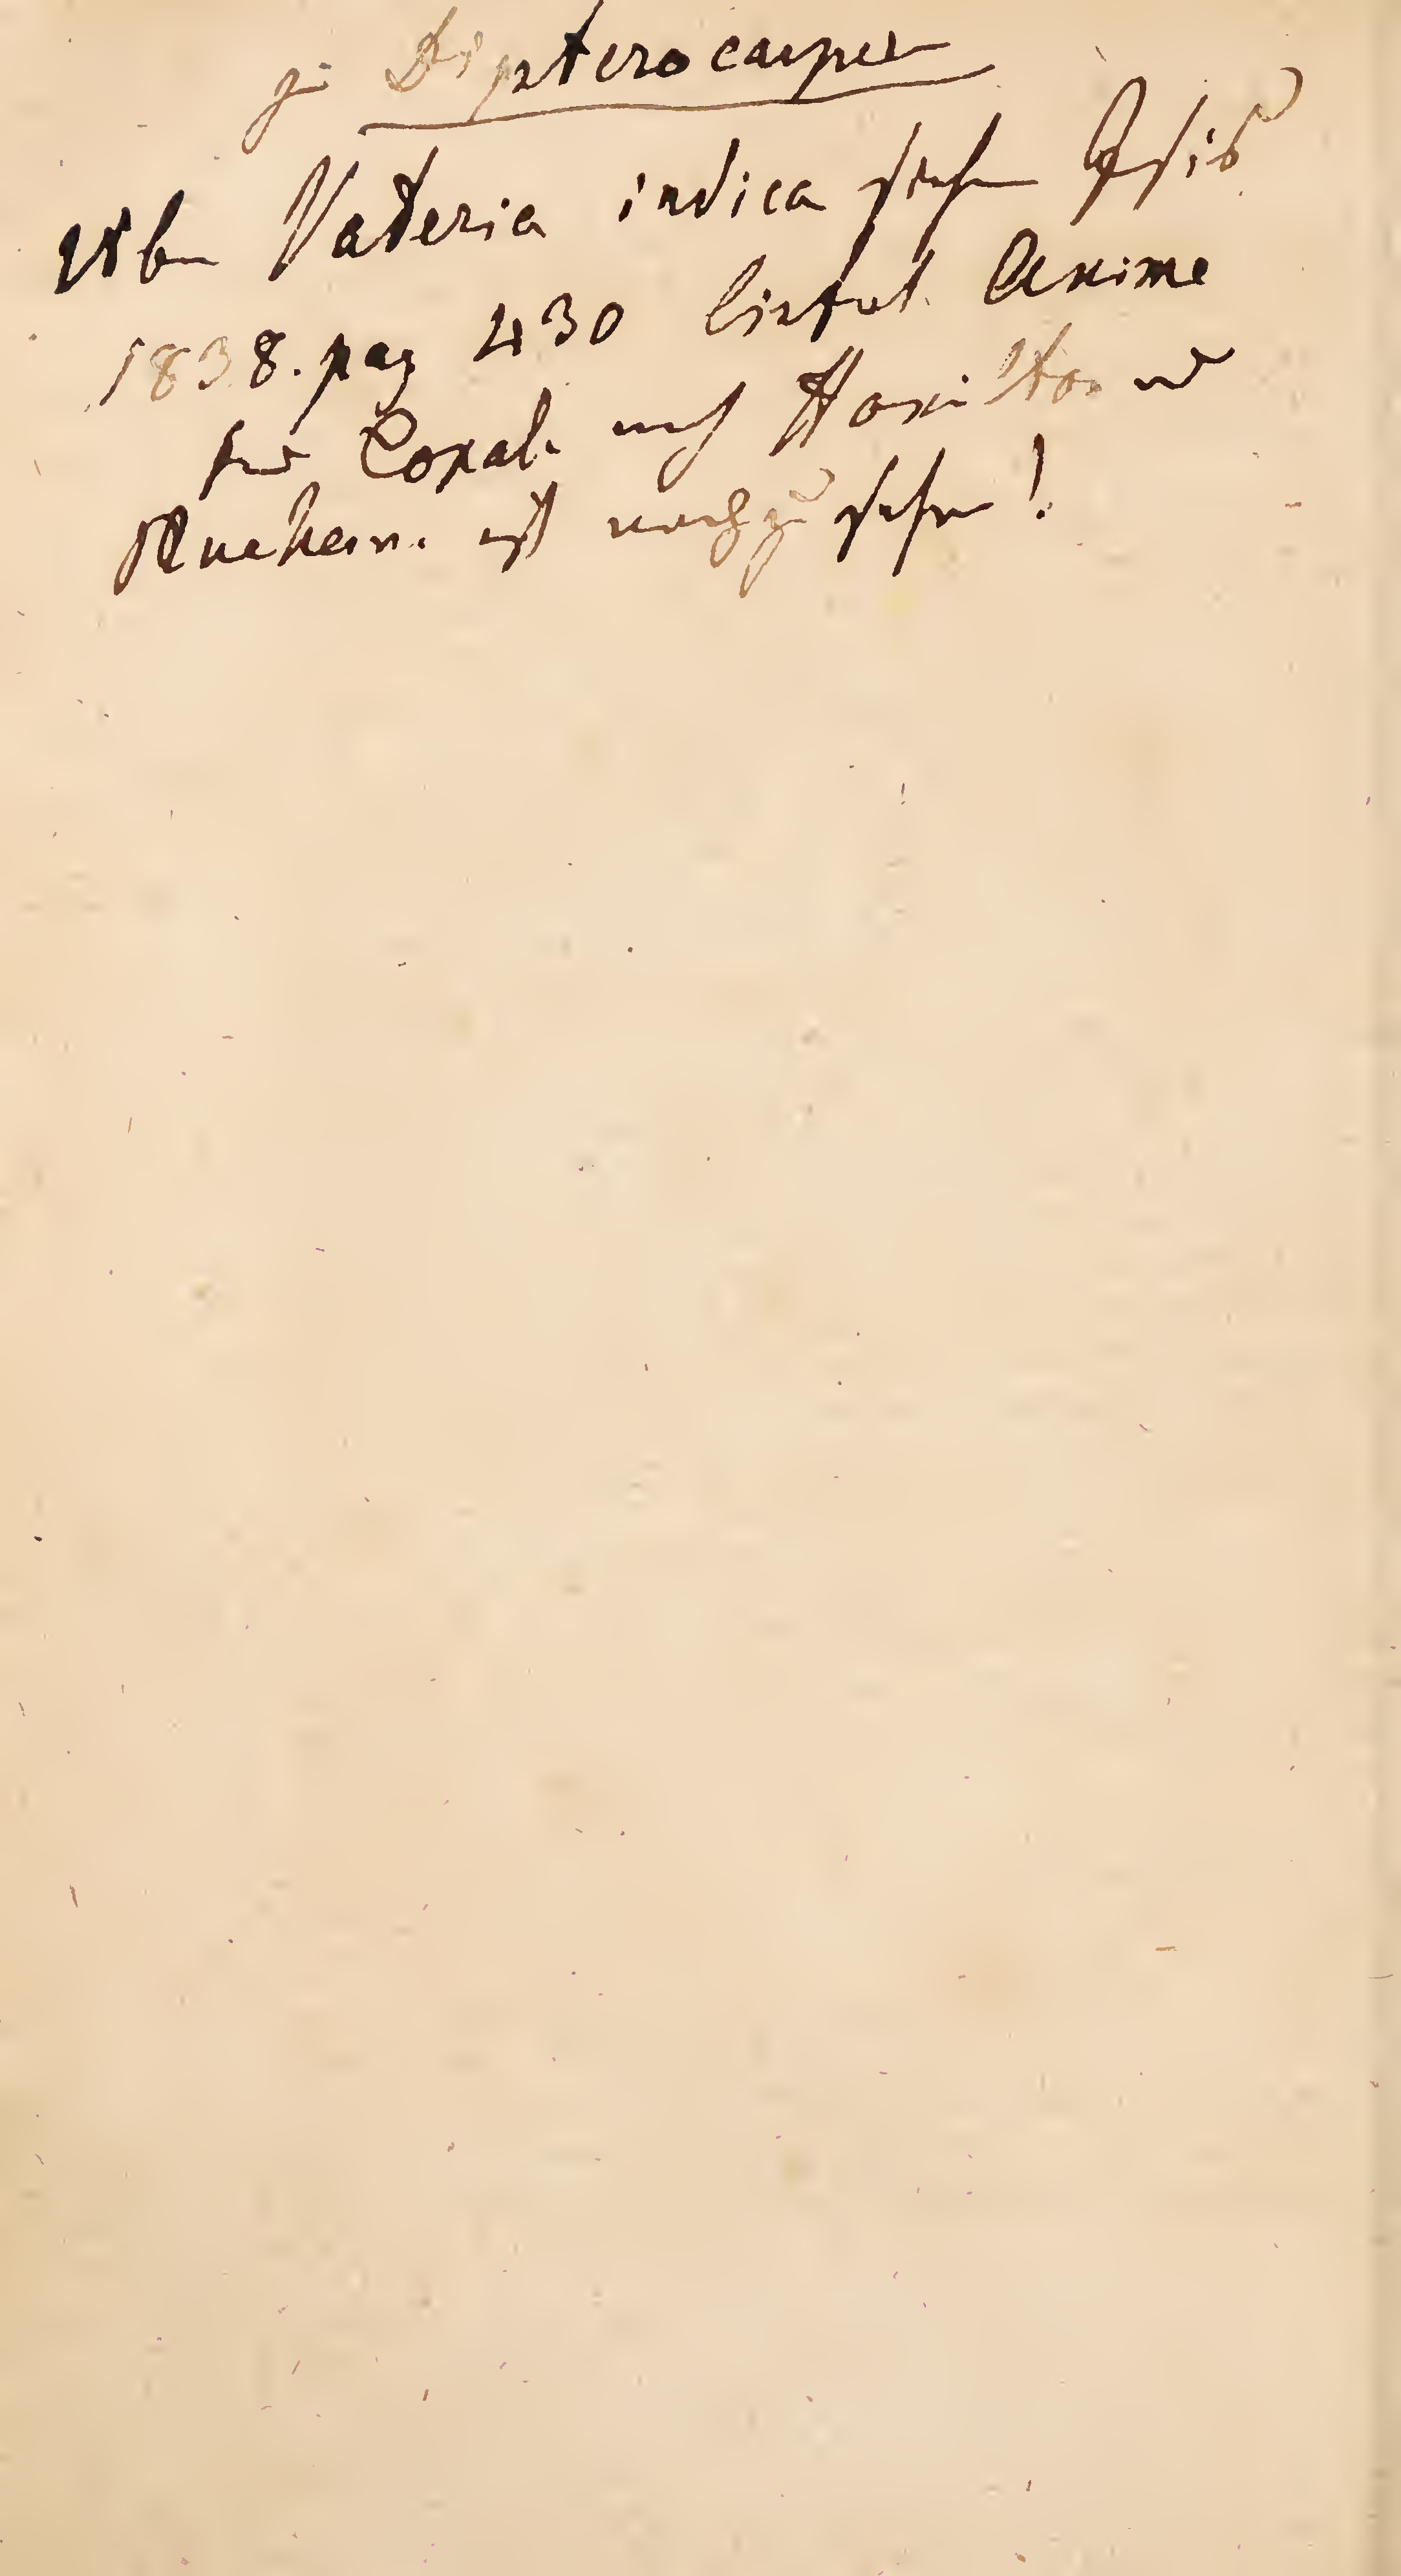 zu Dipterocarpeen
Über Vateria indica siehe Isis
1838. pag 430 liefert Anime
und Copal. nach Hamilton und
Buchan. ist nachzusehen!